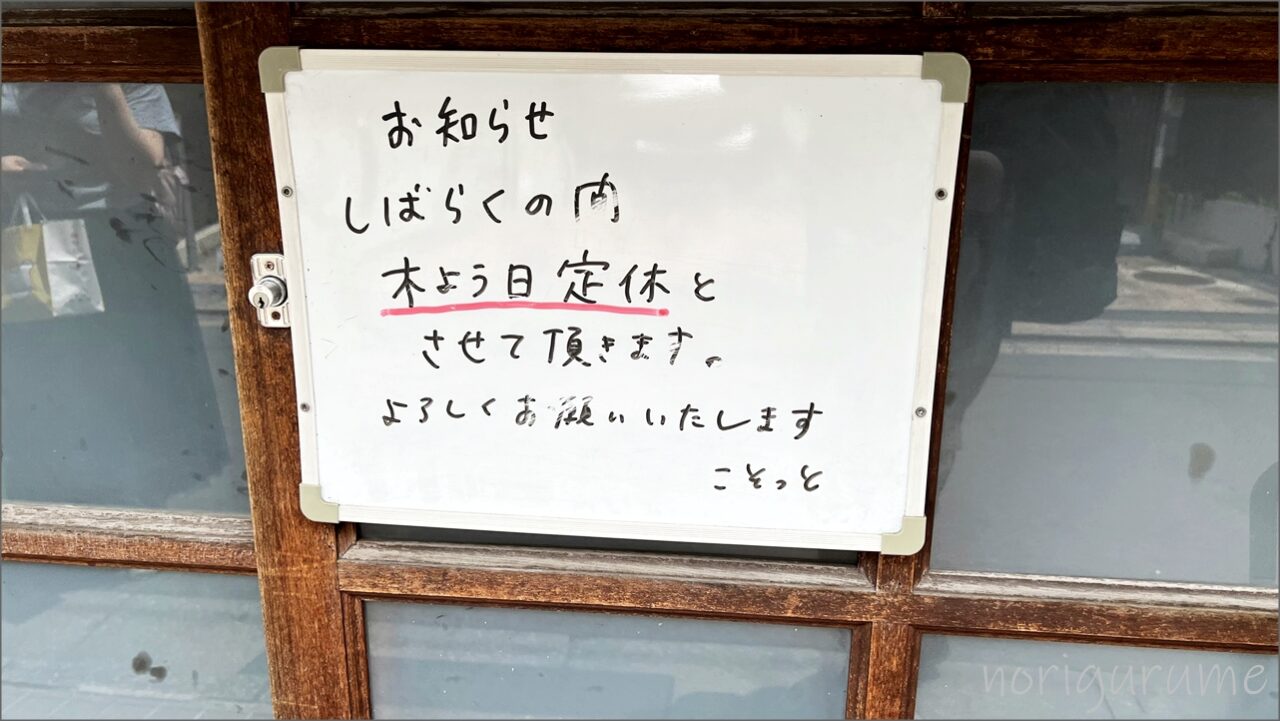 お知らせ
しばらくの間
木よう日定休と
させて頂きます。
よろしくお願いいたします
こそっと
norigurume